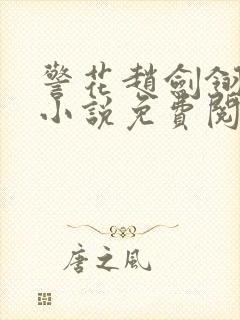 警花趙劍
小說免費閱
唐之風